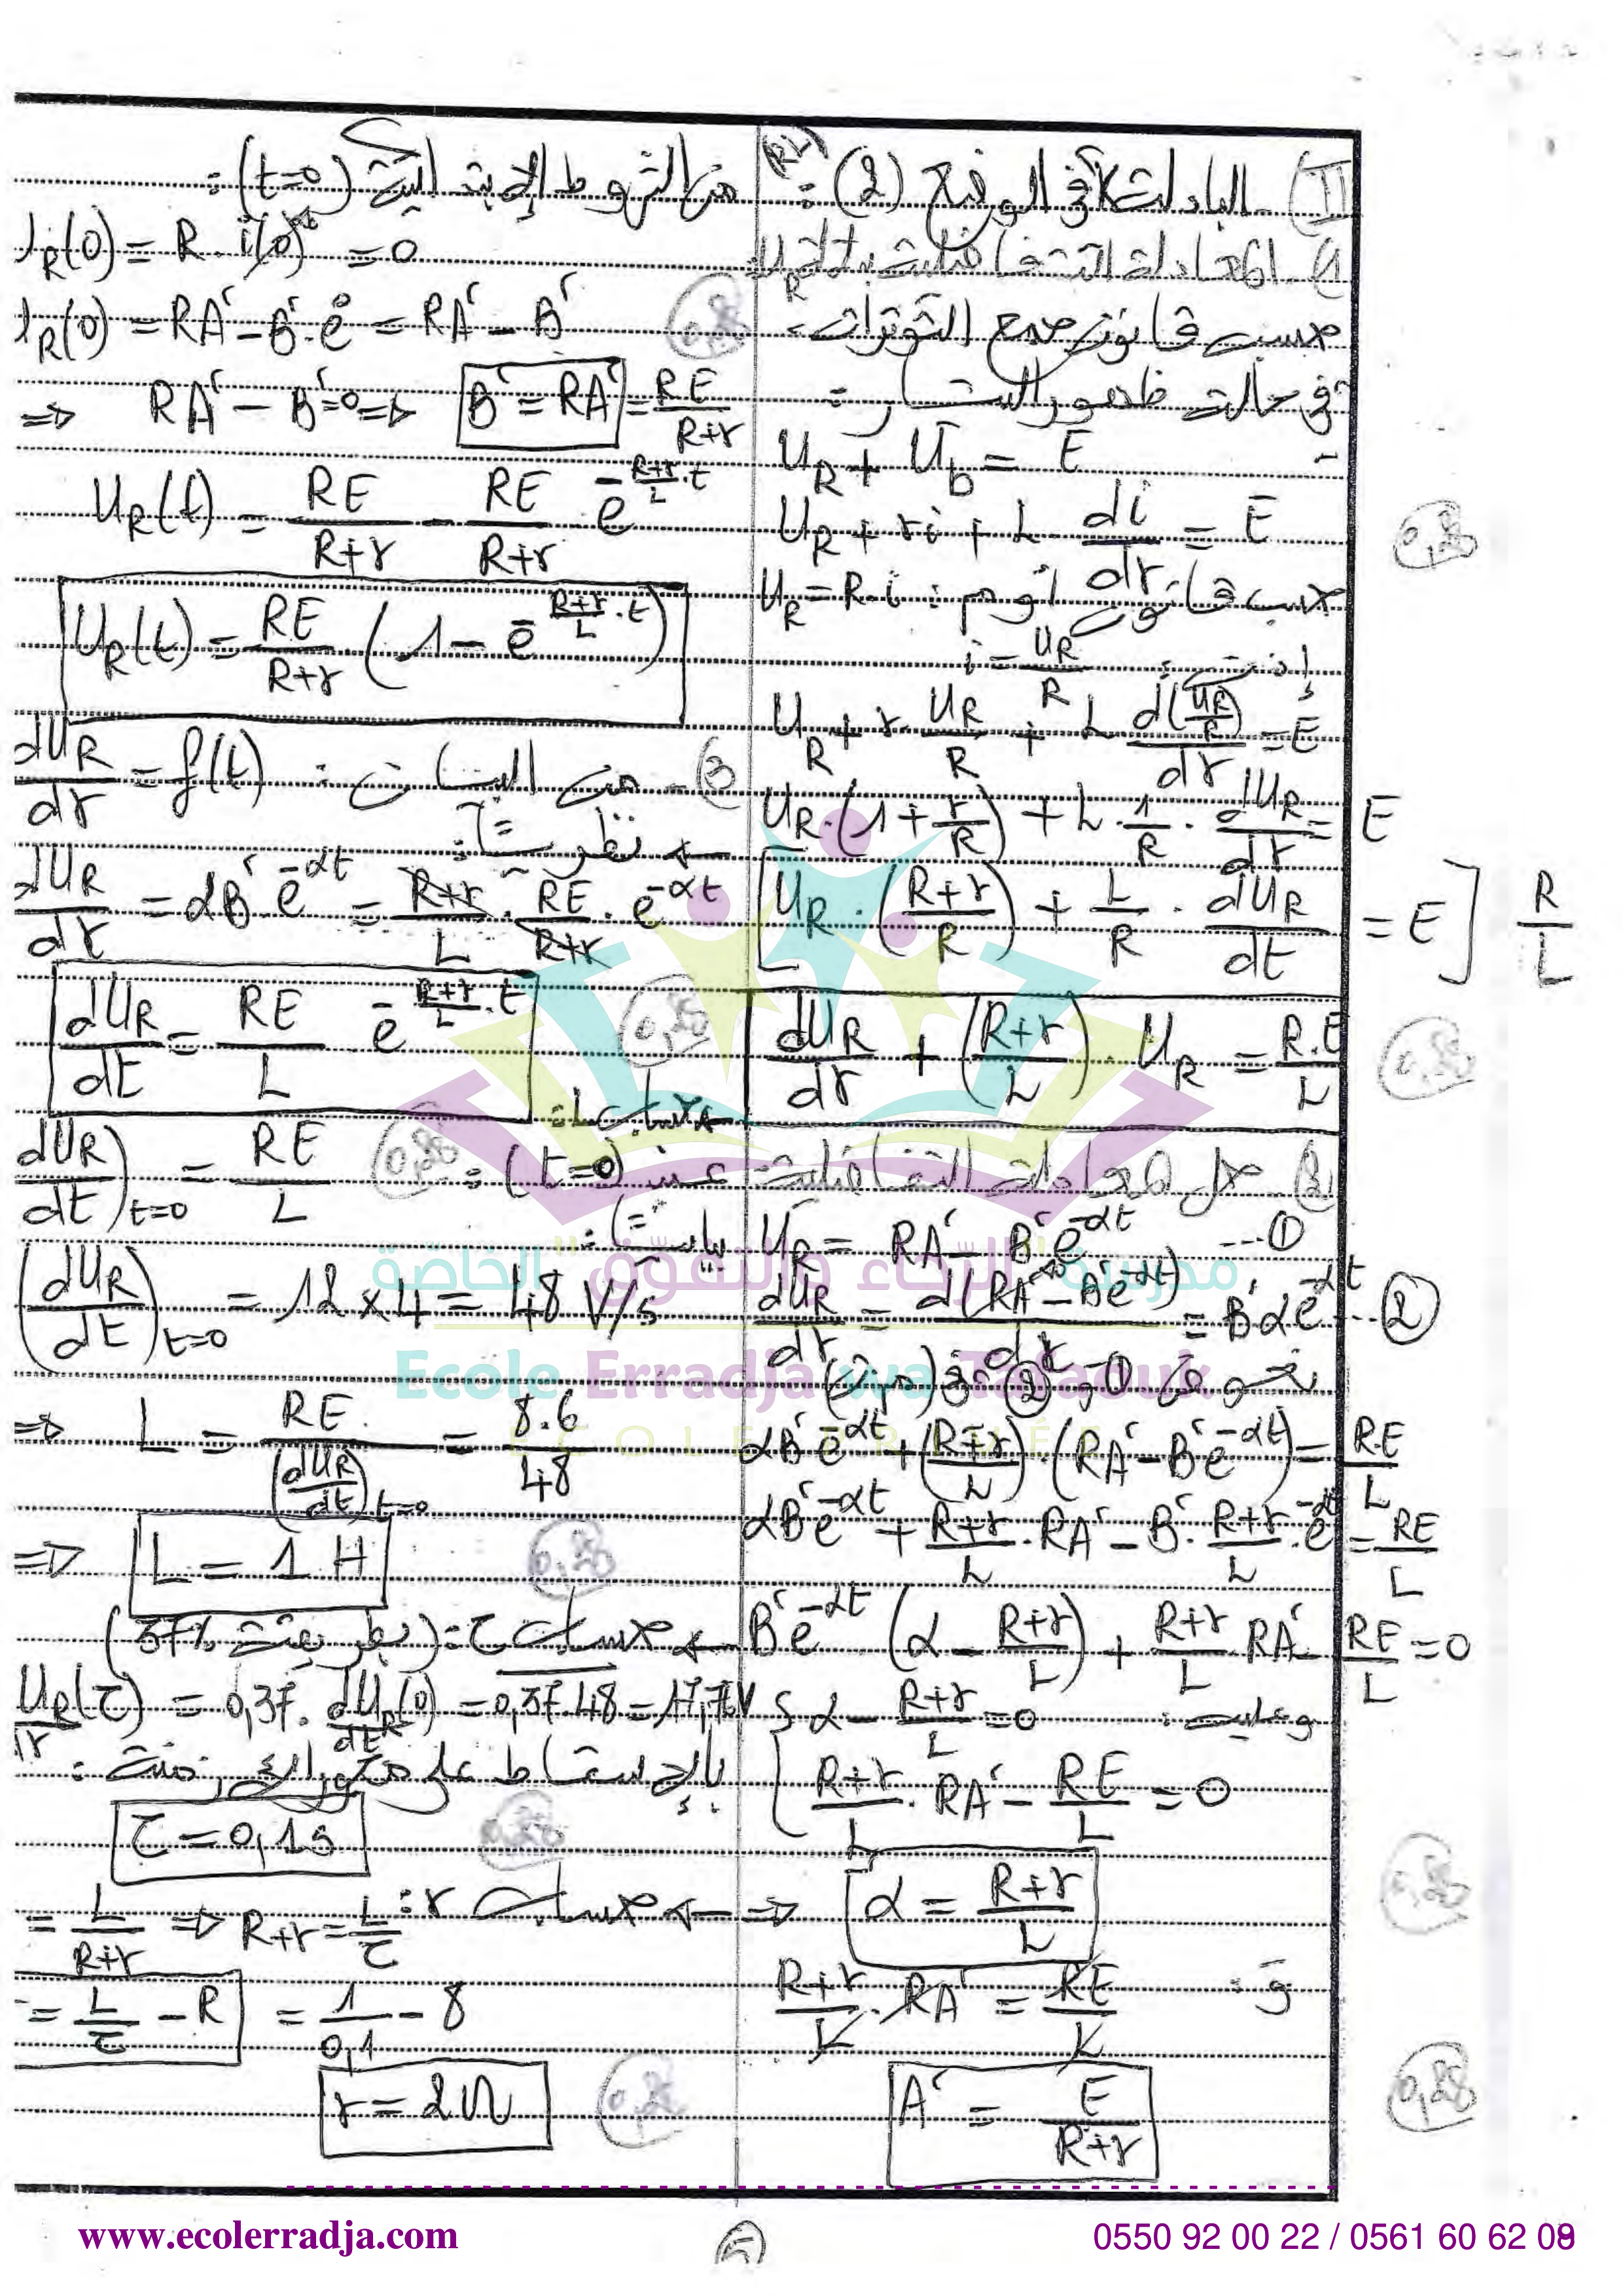 II) البادلة في الوضع (2) : (RL)
1) المعادلة التفاضلية بدلالة U_R
حسب قانون جمع التوترات
في حالة ظهور التيار :
U_R + U_b = E
U_R + ri + L di/dt = E
0,25
حسب قانون أوم : U_R = R.i
إذن : i = U_R/R
U_R + r U_R/R + L d(U_R/R)/dt = E
U_R.(1 + r/R) + L.1/R.dU_R/dt = E
[U_R.((R+r)/R) + L/R.dU_R/dt = E] R/L
dU_R/dt + ((R+r)/L).U_R = R.E/L
0,25
2) حل المعادلة التفاضلية
U_R = RA' - B'e^-αt ---①
dU_R/dt = d(RA' - B'e^-αt)/dt = B'αe^-αt ---②
نعوض ① و ② في
αB'e^-αt + ((R+r)/L).(RA' - B'e^-αt) = R.E/L
αB'e^-αt + (R+r)/L.RA' - B'.(R+r)/L.e^-αt = RE/L
B'e^-αt (α - (R+r)/L) + (R+r)/L RA' - RE/L = 0
وعليه : { α - (R+r)/L = 0
(R+r)/L.RA' - RE/L = 0
⇒ α = (R+r)/L
0,25
و : (R+r)/L.RA' = RE/L
A' = E/(R+r)
0,25
من الشروط الإبتدائية (t=0) :
U_R(0) = R.i(0) = 0
U_R(0) = RA' - B'.e^0 = RA' - B'
0,25
⇒ RA' - B' = 0 ⇒ B' = RA' = RE/(R+r)
U_R(t) = RE/(R+r) - RE/(R+r) e^-(R+r)/L.t
U_R(t) = RE/(R+r) (1 - e^-(R+r)/L.t)
3) - من البيان : dU_R/dt = f(t)
← نظريا :
dU_R/dt = αB'e^-αt = (R+r)/L.RE/(R+r).e^-αt
dU_R/dt = RE/L e^-(R+r)/L.t
0,25
← حساب L :
عند (t=0) : dU_R/dt)t=0 = RE/L
0,25
بيانيا :
(dU_R/dt)t=0 = 12 x 4 = 48 V/s
⇒ L = RE/(dU_R/dt)t=0 = 8.6/48
⇒ L = 1 H
0,25
← حساب τ : (بطريقة 37%)
dU_R/dt(τ) = 0,37.dU_R/dt(0) = 0,37.48 = 17,76V
بالإسقاط على محور الأزمنة :
τ = 0,1s
0,25
← حساب r : = L/(R+r) ⇒ R+r = L/τ
= L/τ - R = 1/0,1 - 8
r = 2Ω
0,25
مدرسة "الرّجاء والتفوّق" الخاصة
Ecole Erradja wa Tafaouk
ECOLE PRIVÉE
www.ecolerradja.com
0550 92 00 22 / 0561 60 62 09